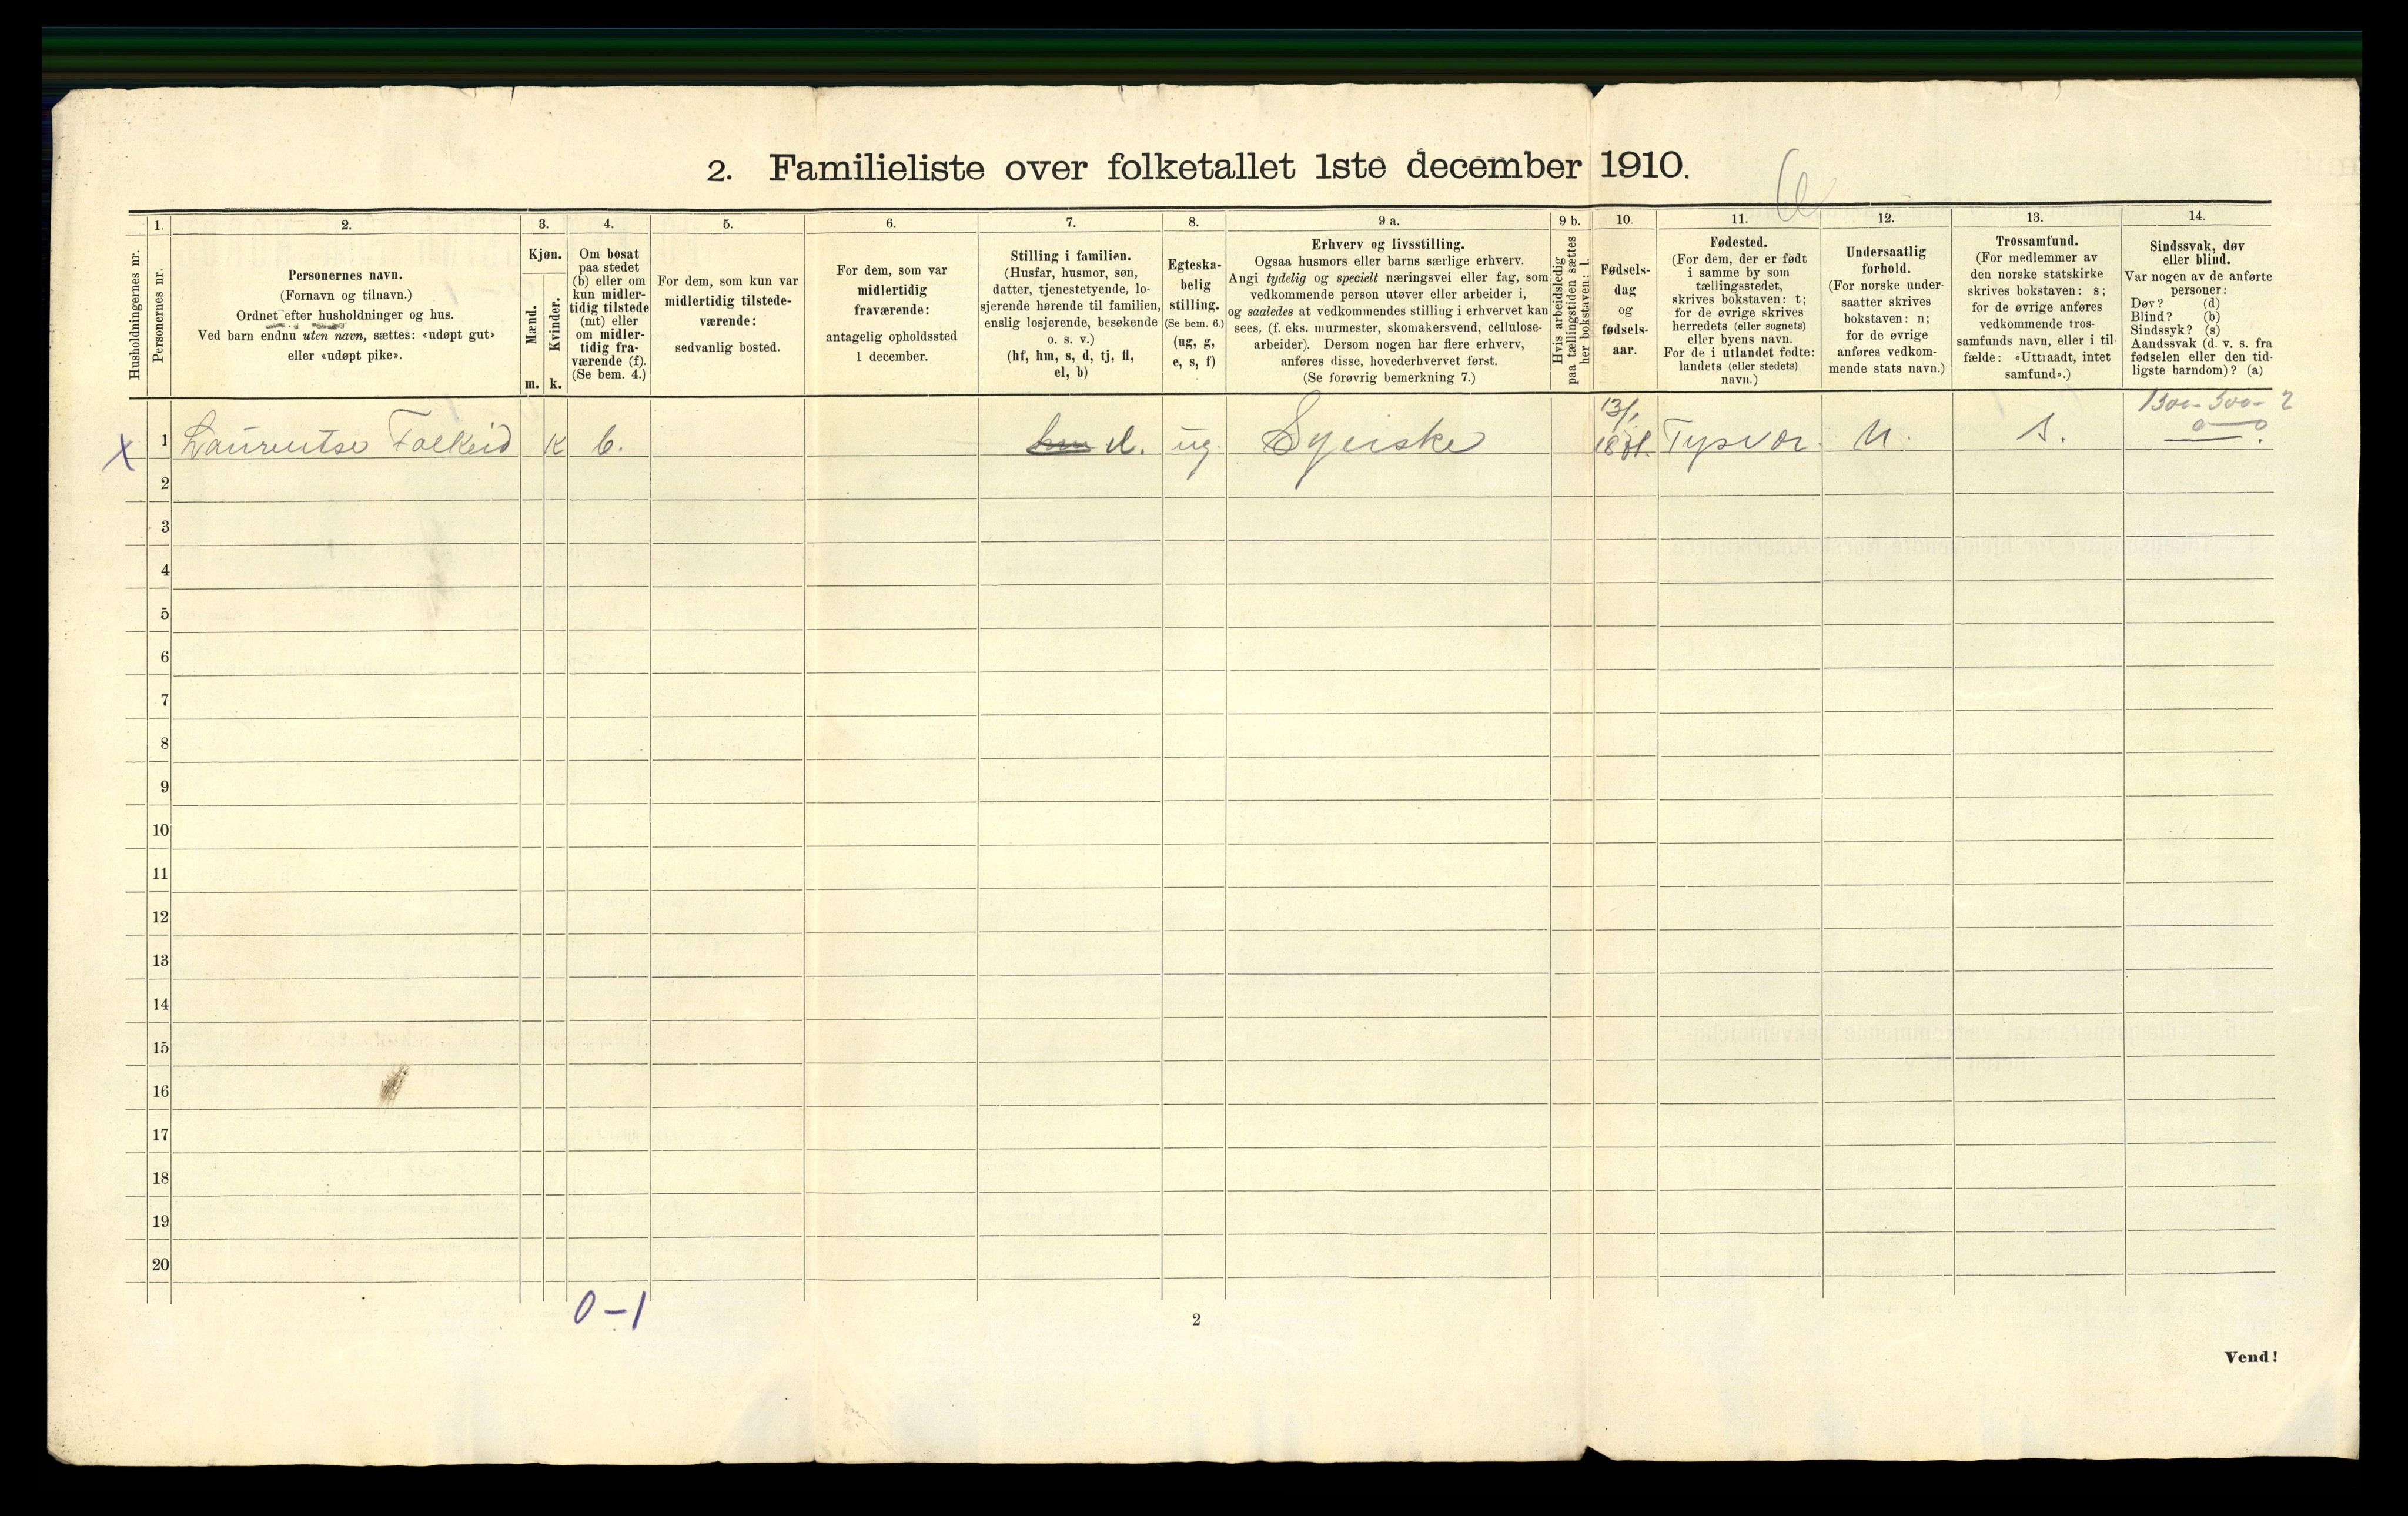 2. Familieliste over folketallet 1ste december 1910.
Husholdningernes nr.
1.
Personernes nr.
2.
Personernes navn.
(Fornavn og tilnavn.)
Ordnet efter husholdninger og hus.
Ved barn endnu uten navn, sættes: «udøpt gut»
eller «udøpt pike».
3.
Kjøn.
Mænd.
Kvinder.
m. k.
4.
Om bosat
paa stedet
(b) eller om
kun midler-
tidig tilstede
(mt) eller
om midler-
tidig fra-
værende (f).
(Se bem. 4.)
5.
For dem, som kun var
midlertidig tilstede-
værende:
sedvanlig bosted.
6.
For dem, som var
midlertidig
fraværende:
antagelig opholdssted
1 december.
7.
Stilling i familien.
(Husfar, husmor, søn,
datter, tjenestetyende, lo-
sjerende hørende til familien,
enslig losjerende, besøkende
o. s. v.)
(hf, hm, s, d, tj, fl,
el, b)
8.
Egteska-
belig
stilling.
(Se bem. 6.)
(ug, g,
e, s, f)
9 a.
Erhverv og livsstilling.
Ogsaa husmors eller barns særlige erhverv.
Angi tydelig og specielt næringsvei eller fag, som
vedkommende person utøver eller arbeider i,
og saaledes at vedkommendes stilling i erhvervet kan
sees, (f. eks. murmester, skomakersvend, cellulose-
arbeider). Dersom nogen har flere erhverv,
anføres disse, hovederhvervet først.
(Se forøvrig bemerkning 7.)
9 b.
Hvis arbeidsledig
paa tællingstiden sættes
her bokstaven: l.
10.
Fødsels-
dag
og
fødsels-
aar.
11.
Fødested.
(For dem, der er født
i samme by som
tællingsstedet,
skrives bokstaven: t;
for de øvrige skrives
herredets (eller sognets)
eller byens navn.
For de i utlandet fødte:
landets (eller stedets)
navn.)
12.
Undersaatlig
forhold.
(For norske under-
saatter skrives
bokstaven: n;
for de øvrige
anføres vedkom-
mende stats navn.)
13.
Trossamfund.
(For medlemmer av
den norske statskirke
skrives bokstaven: s;
for de øvrige anføres
vedkommende tros-
samfunds navn, eller i til-
fælde: «Uttraadt, intet
samfund».)
14.
Sindssvak, døv
eller blind.
Var nogen av de anførte
personer:
Døv? (d)
Blind? (b)
Sindssyk? (s)
Aandssvak (d. v. s. fra
fødselen eller den tid-
ligste barndom)? (a)
1300-300-2
0 0
13/1
X 1 Laurentse Falkeid K b. d. ug. Syerske Tysvær n. s.
2
3
4
5
6
7
8
9
10
11
12
13
14
15
16
17
18
19
20
0-1
2
Vend!